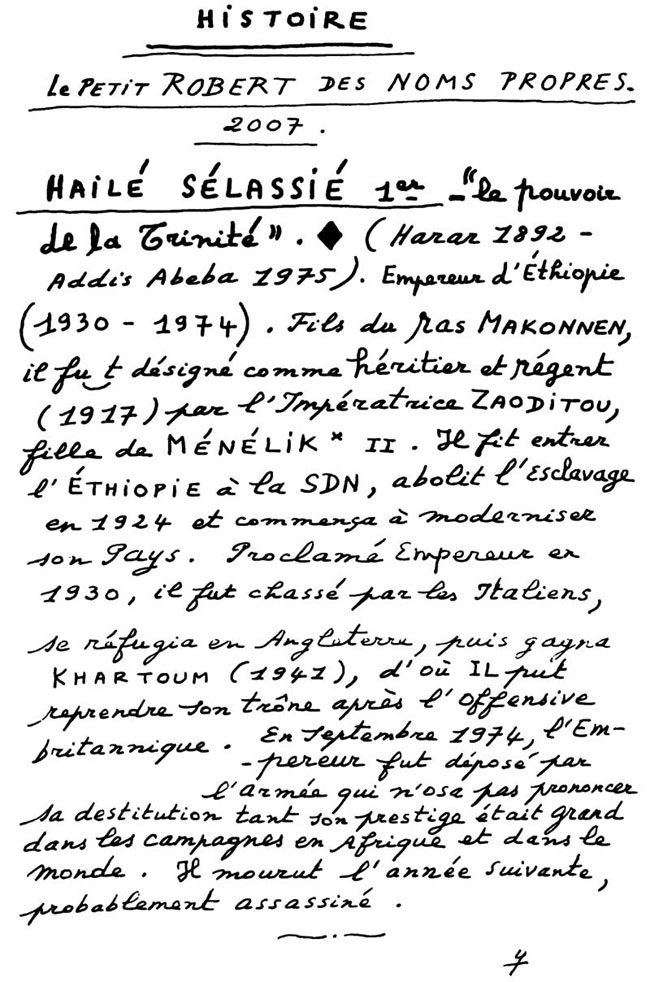 HISTOIRE
Le PETIT ROBERT DES NOMS PROPRES.
2007.
HAILÉ SÉLASSIÉ 1er – "le pouvoir
de la Trinité". ♦ (Harar 1892 -
Addis Abeba 1975). Empereur d'Éthiopie
(1930 - 1974). Fils du Ras MAKONNEN,
il fut désigné comme héritier et régent
(1917) par l'Impératrice ZAODITOU,
fille de MÉNÉLIK* II. Il fit entrer
l'ÉTHIOPIE à la SDN, abolit l'Esclavage
en 1924 et commença à moderniser
son Pays. Proclamé Empereur en
1930, il fut chassé par les Italiens,
se réfugia en Angleterre, puis gagna
KHARTOUM (1941), d'où IL put
reprendre son trône après l'Offensive
britannique. En Septembre 1974, l'Em-
-pereur fut déposé par
l'armée qui n'osa pas prononcer
sa destitution tant son prestige était grand
dans les campagnes en Afrique et dans le
monde. Il mourut l'année suivante,
probablement assassiné.
7